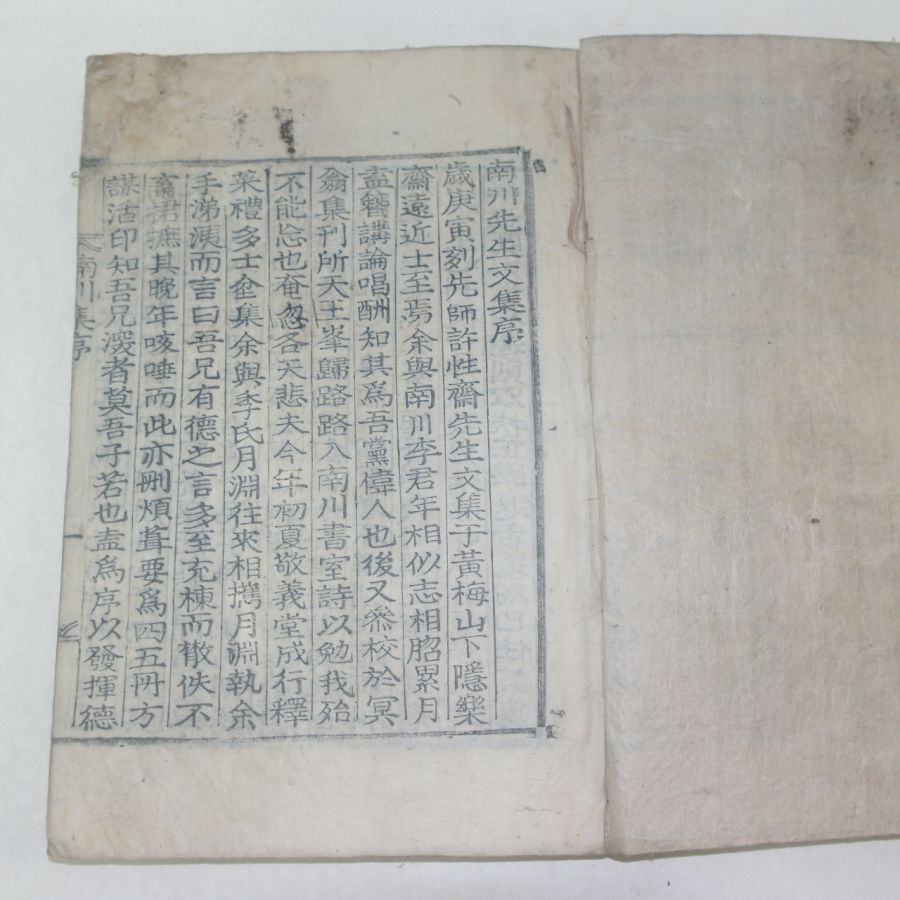 南川先生文集序
歲庚寅刻先師許性齋先生文集于黃梅山下隱樂
齋遠近士至焉余與南川李君年相似志相照累月
盍簪講論唱酬知其爲吾黨偉人也後又叅校於冥
翁集刊所天王峯歸路路入南川書室詩以勉我殆
不能忘也奄忽各天悲夫今年初夏敬義堂成行釋
菜禮多士坌集余與李氏月淵往來相攜月淵執余
手涕洟而言曰吾兄有德之言多至充棟而散佚不
畜捃摭其晚年咳唾而此亦刪煩葺要爲四五冊方
謀活印知吾兄深者莫吾子若也盍爲序以發揮德
南川集序
一